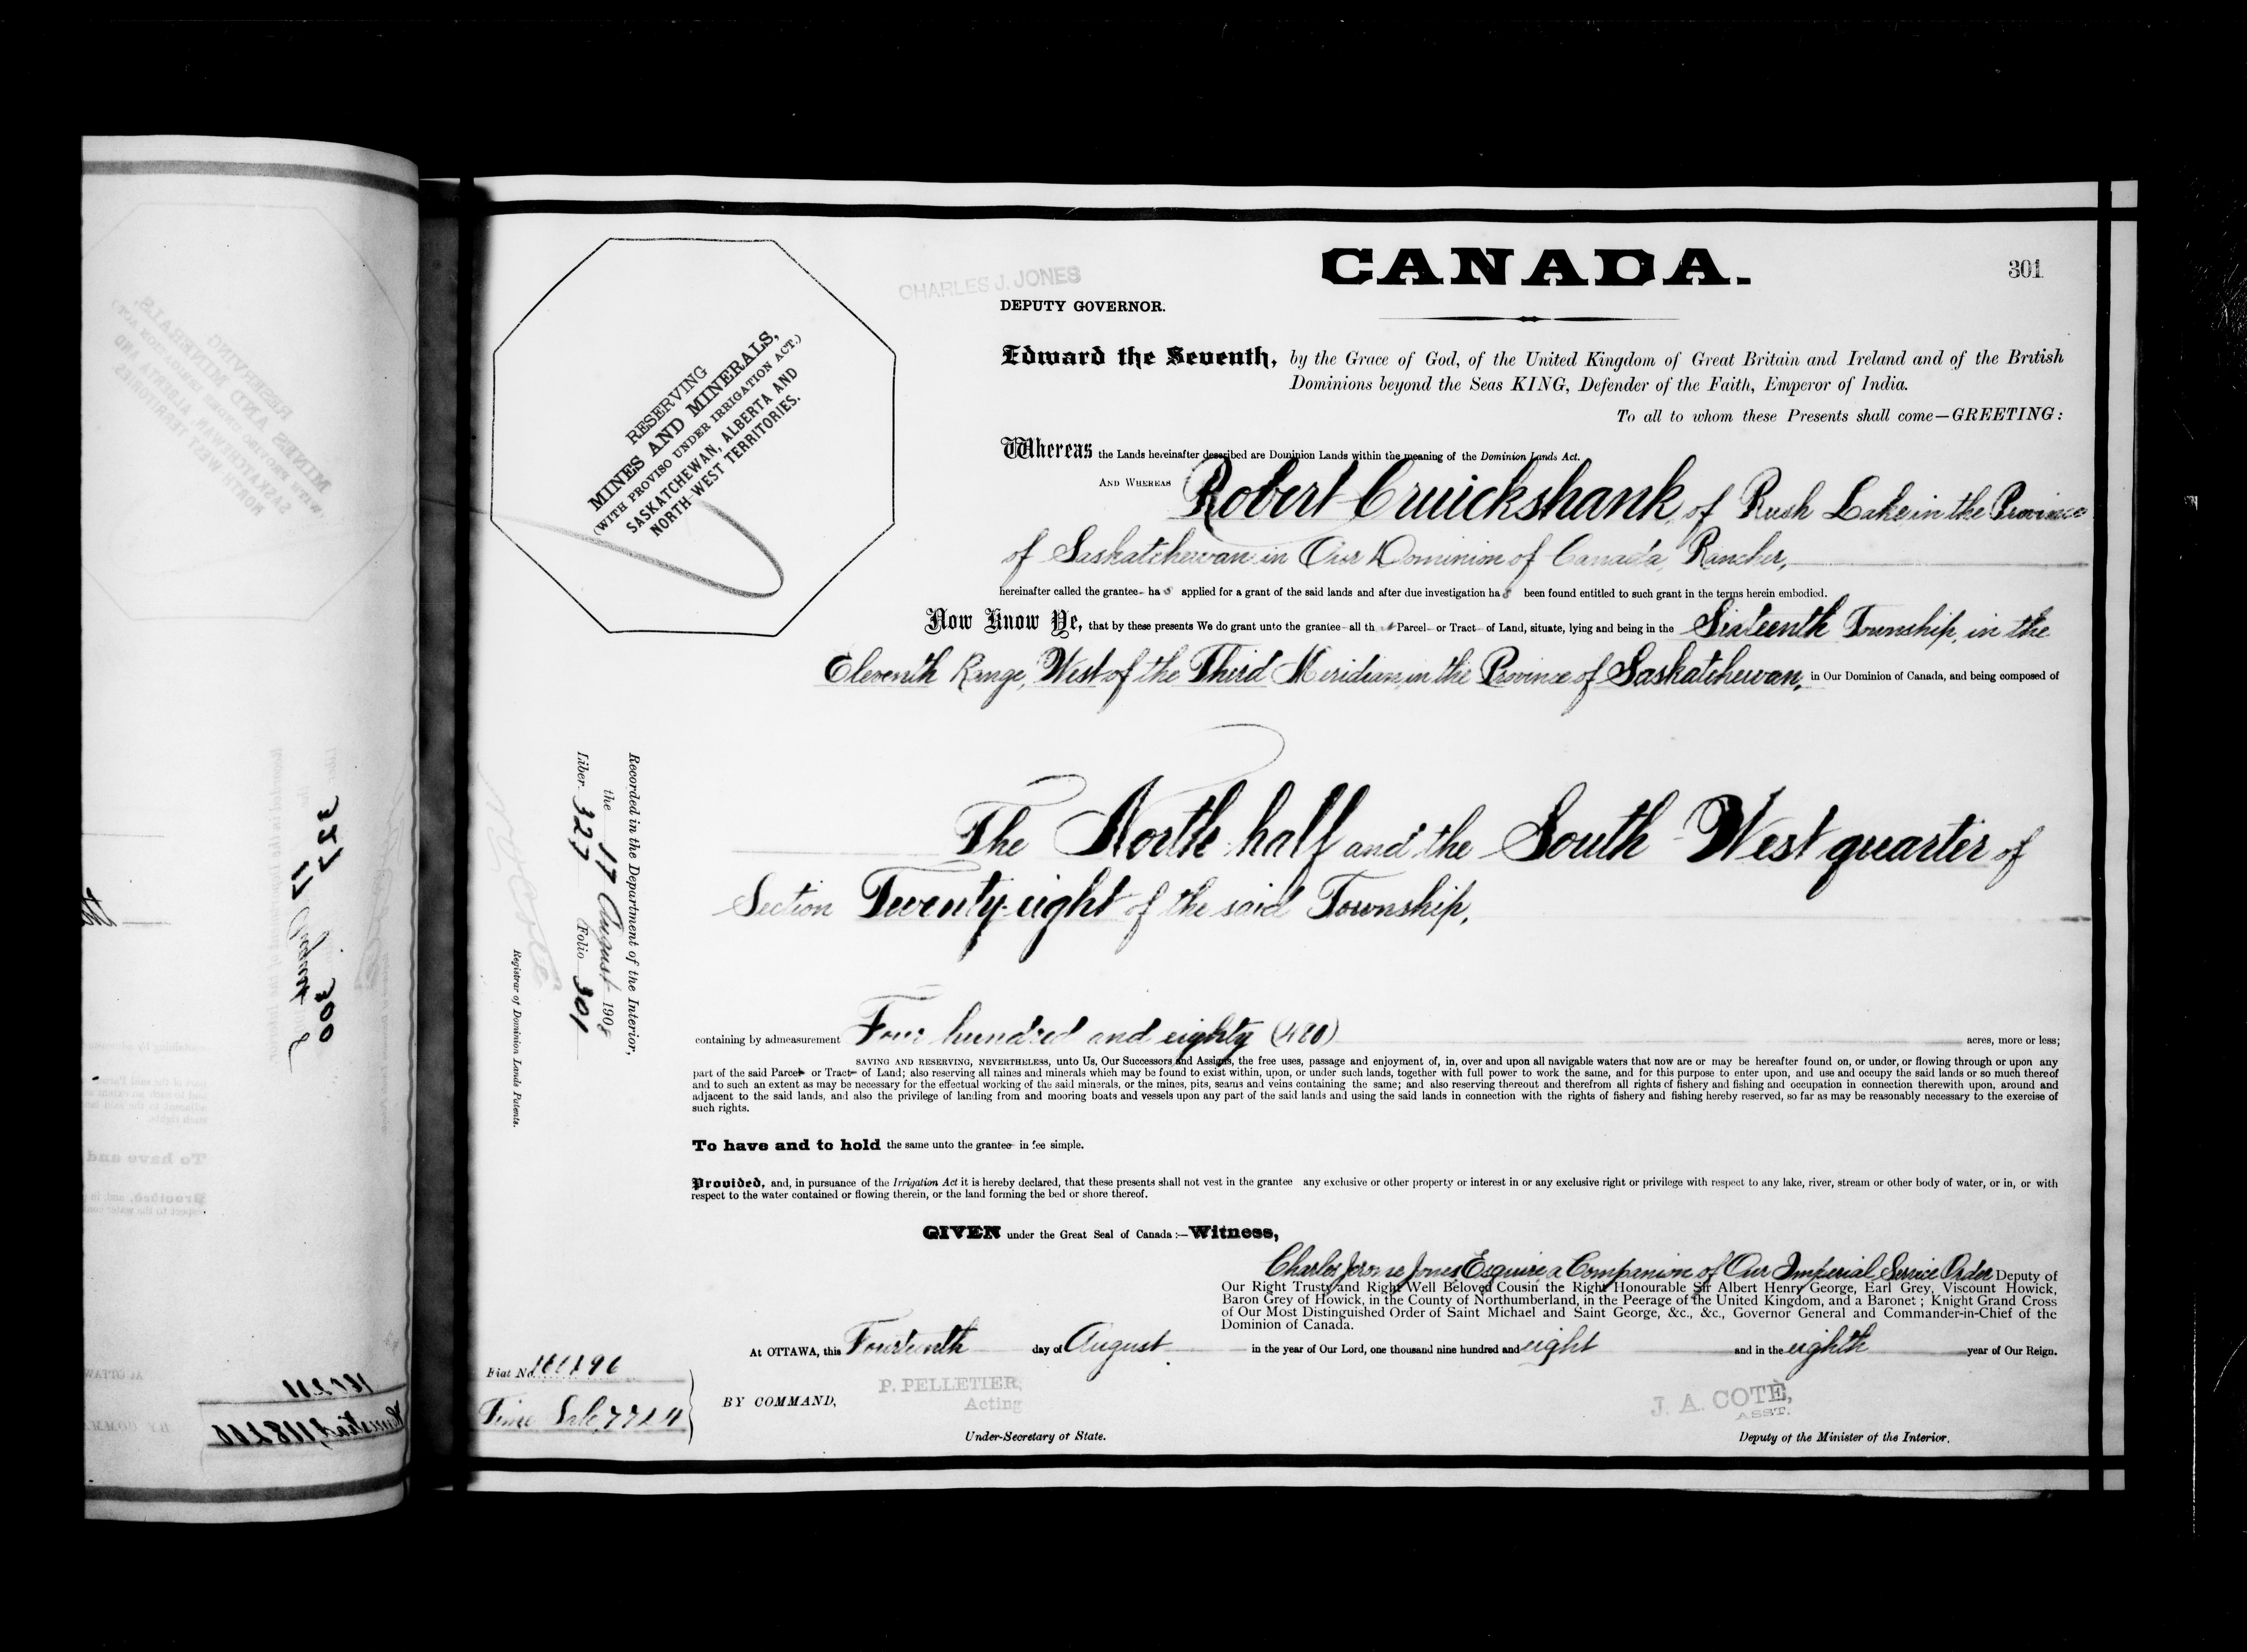 CANADA.
301
CHARLES J. JONES
DEPUTY GOVERNOR.
Edward the Seventh, by the Grace of God, of the United Kingdom of Great Britain and Ireland and of the British
Dominions beyond the Seas KING, Defender of the Faith, Emperor of India.
To all to whom these Presents shall come—GREETING:
RESERVING
MINES AND MINERALS,
(WITH PROVISO UNDER IRRIGATION ACT.)
SASKATCHEWAN, ALBERTA AND
NORTH WEST TERRITORIES.
Whereas the Lands hereinafter described are Dominion Lands within the meaning of the Dominion Lands Act.
AND WHEREAS Robert Cruickshank, of Rush Lake in the Province
of Saskatchewan in Our Dominion of Canada, Rancher,
hereinafter called the grantee has applied for a grant of the said lands and after due investigation has been found entitled to such grant in the terms herein embodied.
Now Know Ye, that by these presents We do grant unto the grantee all th Parcel or Tract of Land, situate, lying and being in the Sixteenth Township, in the
Eleventh Range, West of the Third Meridian, in the Province of Saskatchewan, in Our Dominion of Canada, and being composed of
The North half and the South West quarter of
Section Twenty-eight of the said Township,
Recorded in the Department of the Interior,
the 17 August 1908
Liber 327 Folio 301
Registrar of Dominion Lands Patents.
containing by admeasurement Four hundred and eighty (480) acres, more or less;
SAVING AND RESERVING, NEVERTHELESS, unto Us, Our Successors and Assigns, the free uses, passage and enjoyment of, in, over and upon all navigable waters that now are or may be hereafter found on, or under, or flowing through or upon any
part of the said Parcel or Tract of Land; also reserving all mines and minerals which may be found to exist within, upon, or under such lands, together with full power to work the same, and for this purpose to enter upon, and use and occupy the said lands or so much thereof
and to such an extent as may be necessary for the effectual working of the said minerals, or the mines, pits, seams and veins containing the same; and also reserving thereout and therefrom all rights of fishery and fishing and occupation in connection therewith upon, around and
adjacent to the said lands, and also the privilege of landing from and mooring boats and vessels upon any part of the said lands and using the said lands in connection with the rights of fishery and fishing hereby reserved, so far as may be reasonably necessary to the exercise of
such rights.
To have and to hold the same unto the grantee in fee simple.
Provided, and, in pursuance of the Irrigation Act it is hereby declared, that these presents shall not vest in the grantee any exclusive or other property or interest in or any exclusive right or privilege with respect to any lake, river, stream or other body of water, or in, or with
respect to the water contained or flowing therein, or the land forming the bed or shore thereof.
GIVEN under the Great Seal of Canada:—Witness,
Charles Jerome Jones Esquire a Companion of Our Imperial Service Order Deputy of
Our Right Trusty and Right Well Beloved Cousin the Right Honourable Sir Albert Henry George, Earl Grey, Viscount Howick,
Baron Grey of Howick, in the County of Northumberland, in the Peerage of the United Kingdom, and a Baronet; Knight Grand Cross
of Our Most Distinguished Order of Saint Michael and Saint George, &c., &c., Governor General and Commander-in-Chief of the
Dominion of Canada.
At OTTAWA, this Fourteenth day of August in the year of Our Lord, one thousand nine hundred and eight and in the eighth year of Our Reign.
Fiat No.
Time Sale, 7724
BY COMMAND,
P. PELLETIER,
Acting
Under-Secretary of State.
J. A. COTÈ,
ASST.
Deputy of the Minister of the Interior.